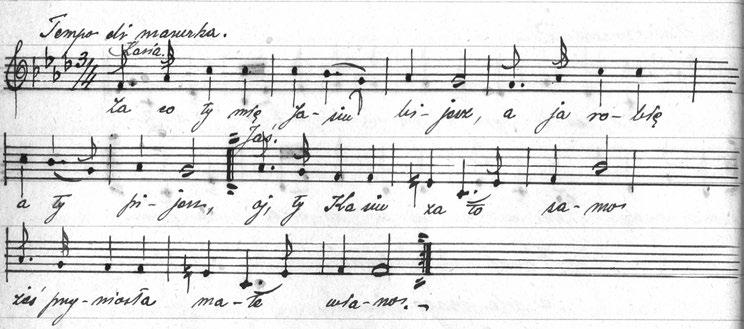 Tempo di mazurka.
Kasia.
3/4
Za co ty mię Ja-siu bi-jesz, a ja ro-bię
Jaś.
a ty pi-jesz, oj, ty Ka siu za to sa-mo
żeś przy-niosła ma-ło wia-no.